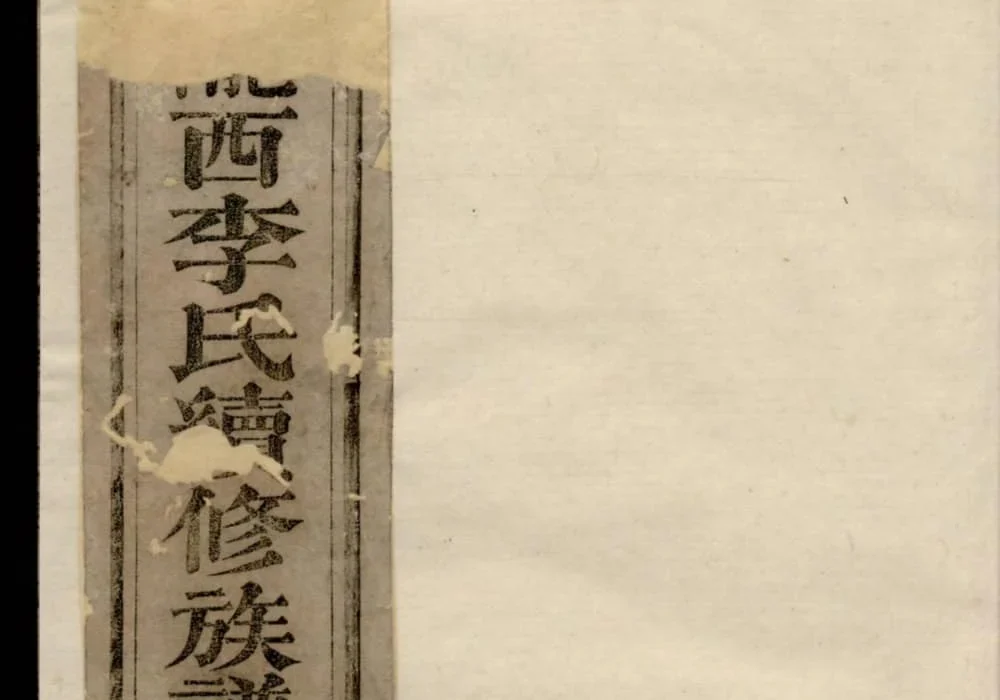 西李氏續修族